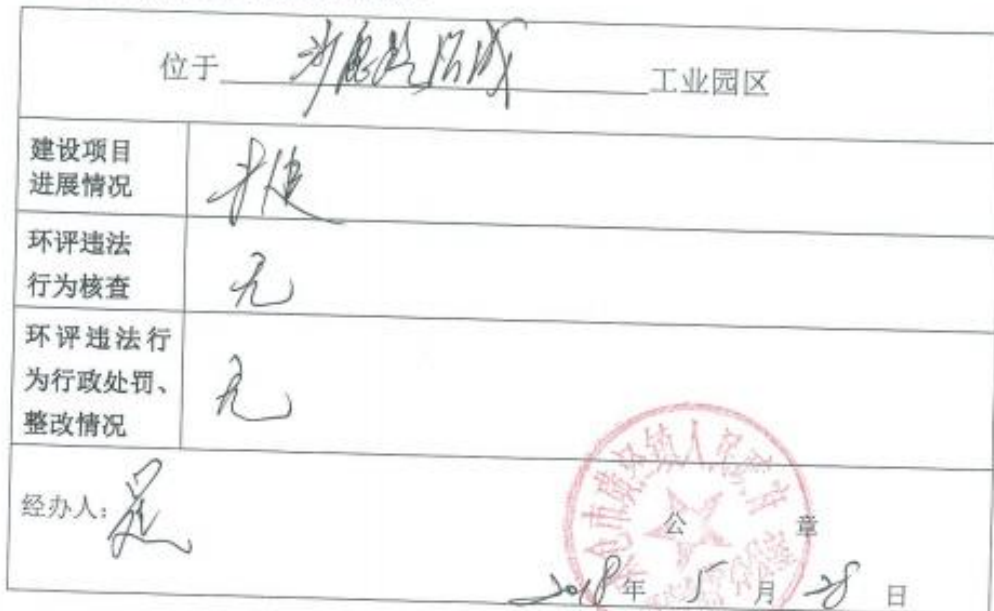 位于 工业园区
建设项目
进展情况
未建
环评违法
行为核查
无
环评违法行
为行政处罚、
整改情况
无
镇人民政府
经办人：
公 章
2018年 5 月 28 日